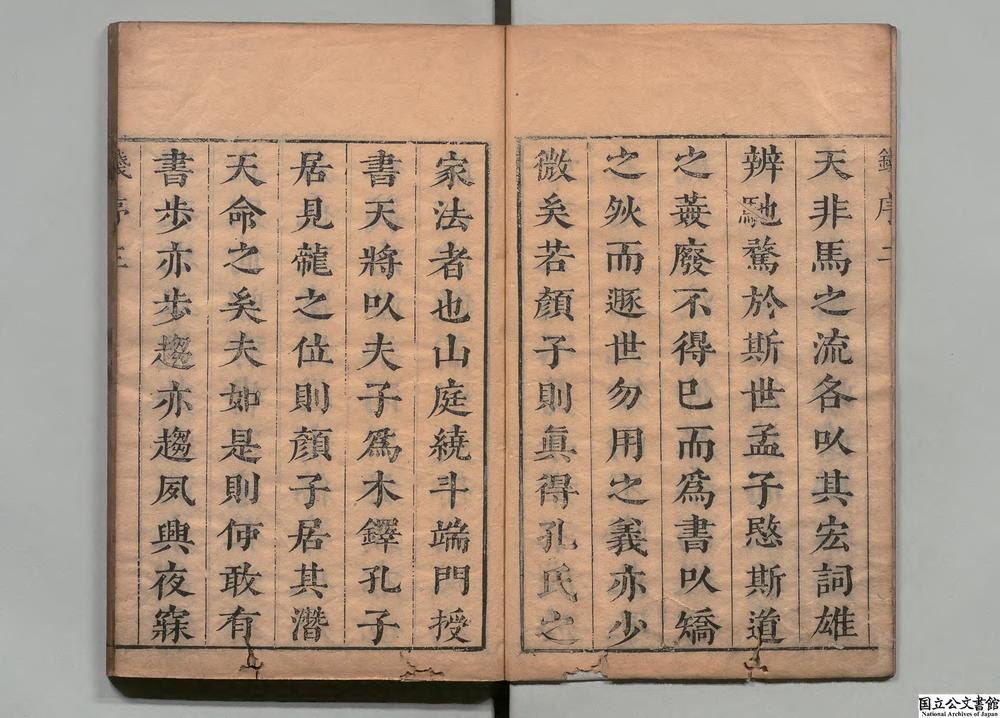 序二
天非馬之流各以其宏詞雄
辨馳騖於斯世孟子愍斯道
之蓁廢不得已而爲書以矯
之然而遯世勿用之義亦少
微矣若顏子則眞得孔氏之
家法者也山庭繞斗端門授
書天將以夫子爲木鐸孔子
居見龍之位則顏子居其潛
天命之矣夫如是則何敢有
書步亦步趨亦趨夙興夜寐
序三
国立公文書館
National Archives of Japan